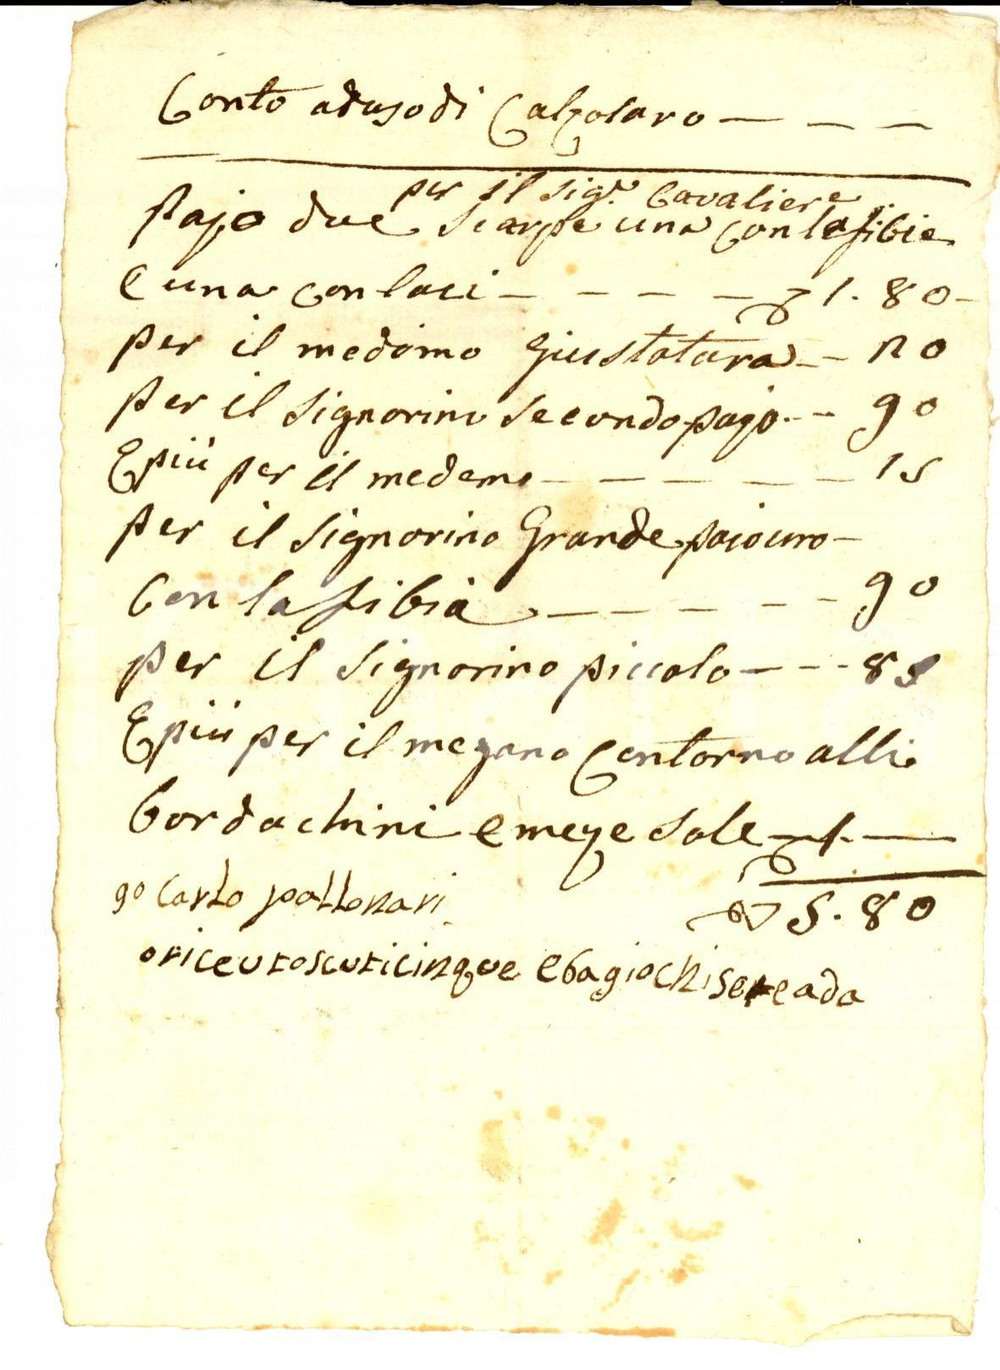 Conto ad uso di Calzolaro
per il Sig.r Cavaliere
Pajo due Scarpe una con la fibie
E una con laci 1. 80
per il medemo Giustatura 20
per il Signorino Secondo pajo 90
E più per il medemo 15
per il Signorino Grande paio uno
Con la fibia 90
per il Signorino piccolo 85
E più per il mezano Contorno alli
Bordachini e meze Sole 1.
Io Carlo pollonari
5. 80
o riceuto scuti cinque e bagiochi